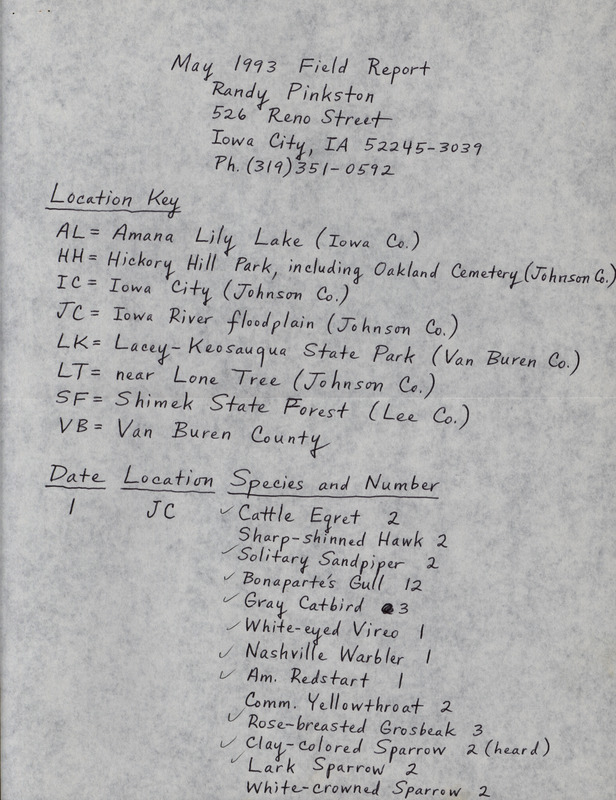 May 1993 Field Report
Randy Pinkston
526 Reno Street
Iowa City, IA 52245-3039
Ph. (319)351-0592
Location Key
AL = Amana Lily Lake (Iowa Co.)
HH = Hickory Hill Park, including Oakland Cemetery (Johnson Co.)
IC = Iowa City (Johnson Co.)
JC = Iowa River floodplain (Johnson Co.)
LK = Lacey-Keosauqua State Park (Van Buren Co.)
LT = near Lone Tree (Johnson Co.)
SF = Shimek State Forest (Lee Co.)
VB = Van Buren County
Date Location Species and Number
1 JC ✓ Cattle Egret 2
Sharp-shinned Hawk 2
✓ Solitary Sandpiper 2
✓ Bonaparte's Gull 12
✓ Gray Catbird 3
✓ White-eyed Vireo 1
✓ Nashville Warbler 1
✓ Am. Redstart 1
Comm. Yellowthroat 2
✓ Rose-breasted Grosbeak 3
✓ Clay-colored Sparrow 2 (heard)
✓ Lark Sparrow 2
White-crowned Sparrow 2